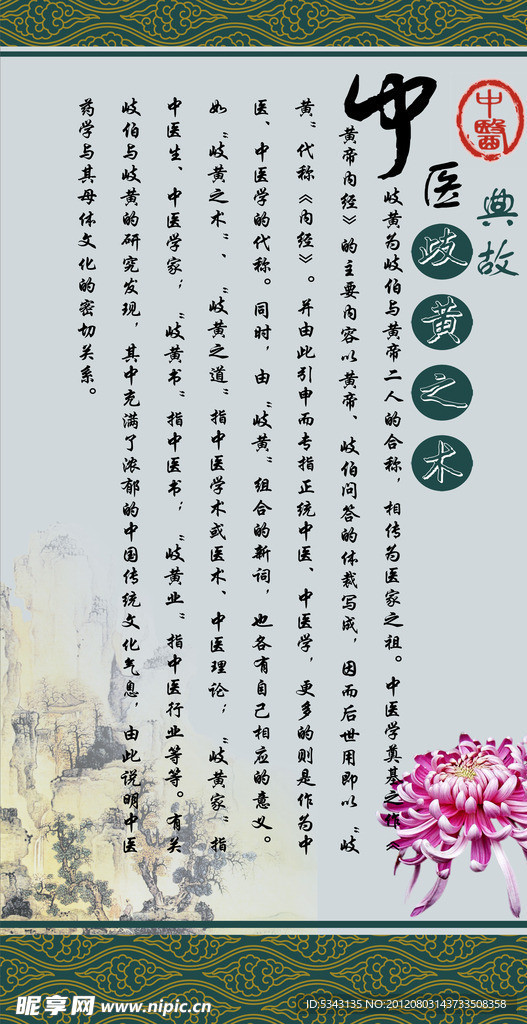 中醫
典故
中医
歧黄之术
歧黄为歧伯与黄帝二人的合称，相传为医家之祖。中医学奠基之作《
黄帝内经》的主要内容以黄帝、歧伯问答的体裁写成，因而后世用即以“歧
黄”代称《内经》。并由此引申而专指正统中医、中医学，更多的则是作为中
医、中医学的代称。同时，由“歧黄”组合的新词，也各有自己相应的意义。
如“歧黄之术”、“歧黄之道”指中医学术或医术、中医理论；“歧黄家”指
中医生、中医学家；“歧黄书”指中医书；“歧黄业”指中医行业等等。有关
歧伯与歧黄的研究发现，其中充满了浓郁的中国传统文化气息，由此说明中医
药学与其母体文化的密切关系。
昵享网 www.nipic.cn
ID:5343135 NO:20120803143733508358